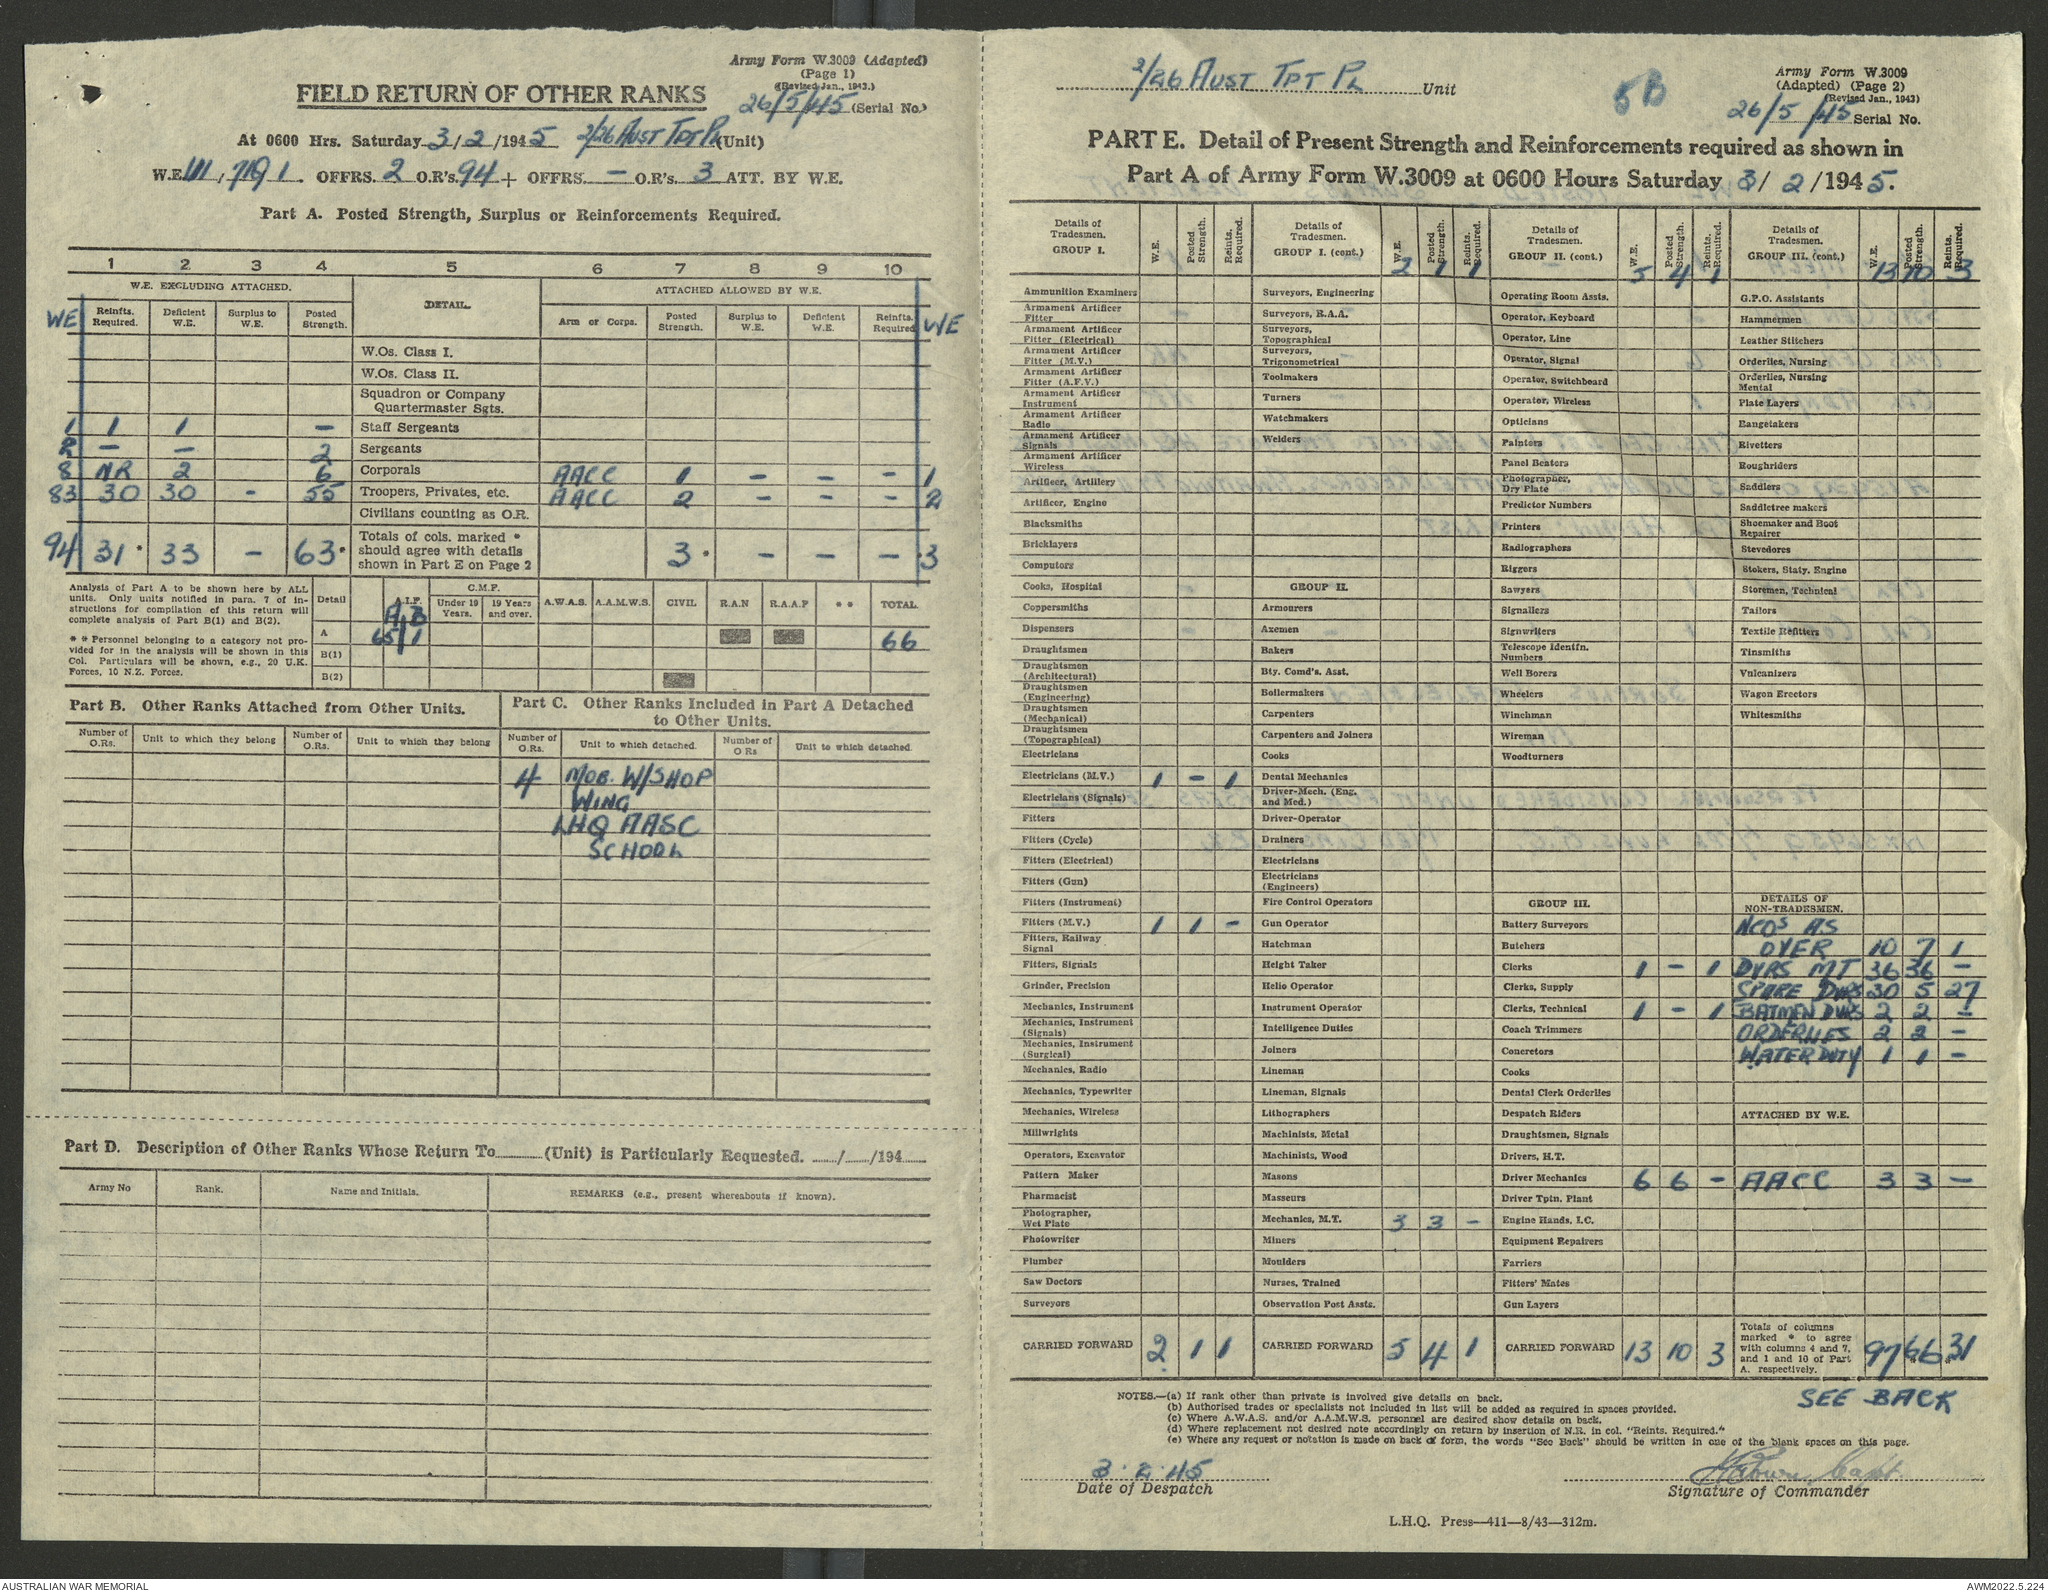 Army Form W.3009 (Adapted)
(Page 1)
(Revised Jan., 1943.)
FIELD RETURN OF OTHER RANKS
26/5/45 (Serial No.)
At 0600 Hrs. Saturday 3/2/1945 2/26 AUST TPT PL (Unit)
W.E. OFFRS. 2 O.R's. 94 + OFFRS. – O.R's. 3 ATT. BY W.E.
Part A. Posted Strength, Surplus or Reinforcements Required.
1 2 3 4 5 6 7 8 9 10
W.E. EXCLUDING ATTACHED. DETAIL. ATTACHED ALLOWED BY W.E.
WE Reinfts. Required. Deficient W.E. Surplus to W.E. Posted Strength. Arm or Corps. Posted Strength. Surplus to W.E. Deficient W.E. Reinfts. Required WE
W.Os. Class I.
W.Os. Class II.
Squadron or Company Quartermaster Sgts.
1 1 1 – Staff Sergeants
2 – – 2 Sergeants
8 NR 2 6 Corporals AACC 1 – – – 1
83 30 30 – 55 Troopers, Privates, etc. AACC 2 – – – 2
Civilians counting as O.R.
94 31 * 33 – 63 * Totals of cols. marked * should agree with details shown in Part E on Page 2 3 * – – – * 3
Analysis of Part A to be shown here by ALL
units. Only units notified in para. 7 of in-
structions for compilation of this return will
complete analysis of Part B(1) and B(2).
* * Personnel belonging to a category not pro-
vided for in the analysis will be shown in this
Col. Particulars will be shown, e.g., 20 U.K.
Forces, 10 N.Z. Forces.
Detail A.I.F. C.M.F. Under 19 Years. 19 Years and over. A.W.A.S. A.A.M.W.S. CIVIL R.A.N R.A.A.F * * TOTAL
A B
A 65 1 66
B(1)
B(2)
Part B. Other Ranks Attached from Other Units.
Part C. Other Ranks Included in Part A Detached
to Other Units.
Number of O.Rs. Unit to which they belong Number of O.Rs. Unit to which they belong Number of O.Rs. Unit to which detached. Number of O Rs Unit to which detached.
4 MOB. W/SHOP
WING
LHQ AASC
SCHOOL
Part D. Description of Other Ranks Whose Return To (Unit) is Particularly Requested. / /194
Army No Rank. Name and Initials. REMARKS (e.g., present whereabouts if known).
2/26 AUST TPT PL Unit
5B
Army Form W.3009
(Adapted) (Page 2)
(Revised Jan., 1943)
26/5/45 Serial No.
PART E. Detail of Present Strength and Reinforcements required as shown in
Part A of Army Form W.3009 at 0600 Hours Saturday 3/2/1945.
Details of Tradesmen. GROUP I. W.E. Posted Strength. Reints. Required.
Ammunition Examiners
Armament Artificer Fitter
Armament Artificer Fitter (Electrical)
Armament Artificer Fitter (M.V.)
Armament Artificer Fitter (A.F.V.)
Armament Artificer Instrument
Armament Artificer Radio
Armament Artificer Signals
Armament Artificer Wireless
Artificer, Artillery
Artificer, Engine
Blacksmiths
Bricklayers
Computors
Cooks, Hospital
Coppersmiths
Dispensers
Draughtsmen
Draughtsmen (Architectural)
Draughtsmen (Engineering)
Draughtsmen (Mechanical)
Draughtsmen (Topographical)
Electricians
Electricians (M.V.) 1 – 1
Electricians (Signals)
Fitters
Fitters (Cycle)
Fitters (Electrical)
Fitters (Gun)
Fitters (Instrument)
Fitters (M.V.) 1 1 –
Fitters, Railway Signal
Fitters, Signals
Grinder, Precision
Mechanics, Instrument
Mechanics, Instrument (Signals)
Mechanics, Instrument (Surgical)
Mechanics, Radio
Mechanics, Typewriter
Mechanics, Wireless
Millwrights
Operators, Excavator
Pattern Maker
Pharmacist
Photographer, Wet Plate
Photowriter
Plumber
Saw Doctors
Surveyors
CARRIED FORWARD 2 1 1
Details of Tradesmen. GROUP I. (cont.) W.E. Posted Strength. Reints. Required. 2 1 1
Surveyors, Engineering
Surveyors, R.A.A.
Surveyors, Topographical
Surveyors, Trigonometrical
Toolmakers
Turners
Watchmakers
Welders
GROUP II.
Armourers
Axemen
Bakers
Bty. Comd's. Asst.
Boilermakers
Carpenters
Carpenters and Joiners
Cooks
Dental Mechanics
Driver-Mech. (Eng. and Med.)
Driver-Operator
Drainers
Electricians
Electricians (Engineers)
Fire Control Operators
Gun Operator
Hatchman
Height Taker
Helio Operator
Instrument Operator
Intelligence Duties
Joiners
Lineman
Lineman, Signals
Lithographers
Machinists, Metal
Machinists, Wood
Masons
Masseurs
Mechanics, M.T. 3 3 –
Miners
Moulders
Nurses, Trained
Observation Post Assts.
CARRIED FORWARD 5 4 1
Details of Tradesmen. GROUP II. (cont.) W.E. Posted Strength. Reints. Required. 5 4 1
Operating Room Assts.
Operator, Keyboard
Operator, Line
Operator, Signal
Operator, Switchboard
Operator, Wireless
Opticians
Painters
Panel Beaters
Photographer, Dry Plate
Predictor Numbers
Printers
Radiographers
Riggers
Sawyers
Signallers
Signwriters
Telescope Identfn. Numbers
Well Borers
Wheelers
Winchman
Wireman
Woodturners
GROUP III.
Battery Surveyors
Butchers
Clerks 1 – 1
Clerks, Supply
Clerks, Technical 1 – 1
Coach Trimmers
Concretors
Cooks
Dental Clerk Orderlies
Despatch Riders
Draughtsmen, Signals
Drivers, H.T.
Driver Mechanics 6 6 –
Driver Tptn. Plant
Engine Hands, I.C.
Equipment Repairers
Farriers
Fitters' Mates
Gun Layers
CARRIED FORWARD 13 10 3
Details of Tradesmen. GROUP III. (cont.) W.E. Posted Strength. Reints. Required. 13 10 3
G.P.O. Assistants
Hammermen
Leather Stitchers
Orderlies, Nursing
Orderlies, Nursing Mental
Plate Layers
Rangetakers
Rivetters
Roughriders
Saddlers
Saddletree makers
Shoemaker and Boot Repairer
Stevedores
Stokers, Staty. Engine
Storemen, Technical
Tailors
Textile Refitters
Tinsmiths
Vulcanizers
Wagon Erectors
Whitesmiths
DETAILS OF NON-TRADESMEN.
NCOS AS
OVER 10 7 1
DVRS MT 36 36 –
SPARE DVRS 30 5 27
BATMEN DVRS 2 2 –
ORDERLIES 2 2 –
WATER DUTY 1 1 –
ATTACHED BY W.E.
AACC 3 3 –
Totals of columns marked * to agree with columns 4 and 7, and 1 and 10 of Part A. respectively. 97 66 31
SEE BACK
NOTES.—(a) If rank other than private is involved give details on back.
(b) Authorised trades or specialists not included in list will be added as required in spaces provided.
(c) Where A.W.A.S. and/or A.A.M.W.S. personnel are desired show details on back.
(d) Where replacement not desired note accordingly on return by insertion of N.R. in col. "Reints. Required."
(e) Where any request or notation is made on back of form, the words "See Back" should be written in one of the blank spaces on this page.
3.2.45
Date of Despatch
Capt
Signature of Commander
L.H.Q. Press—411—8/43—312m.
AUSTRALIAN WAR MEMORIAL
AWM2022.5.224